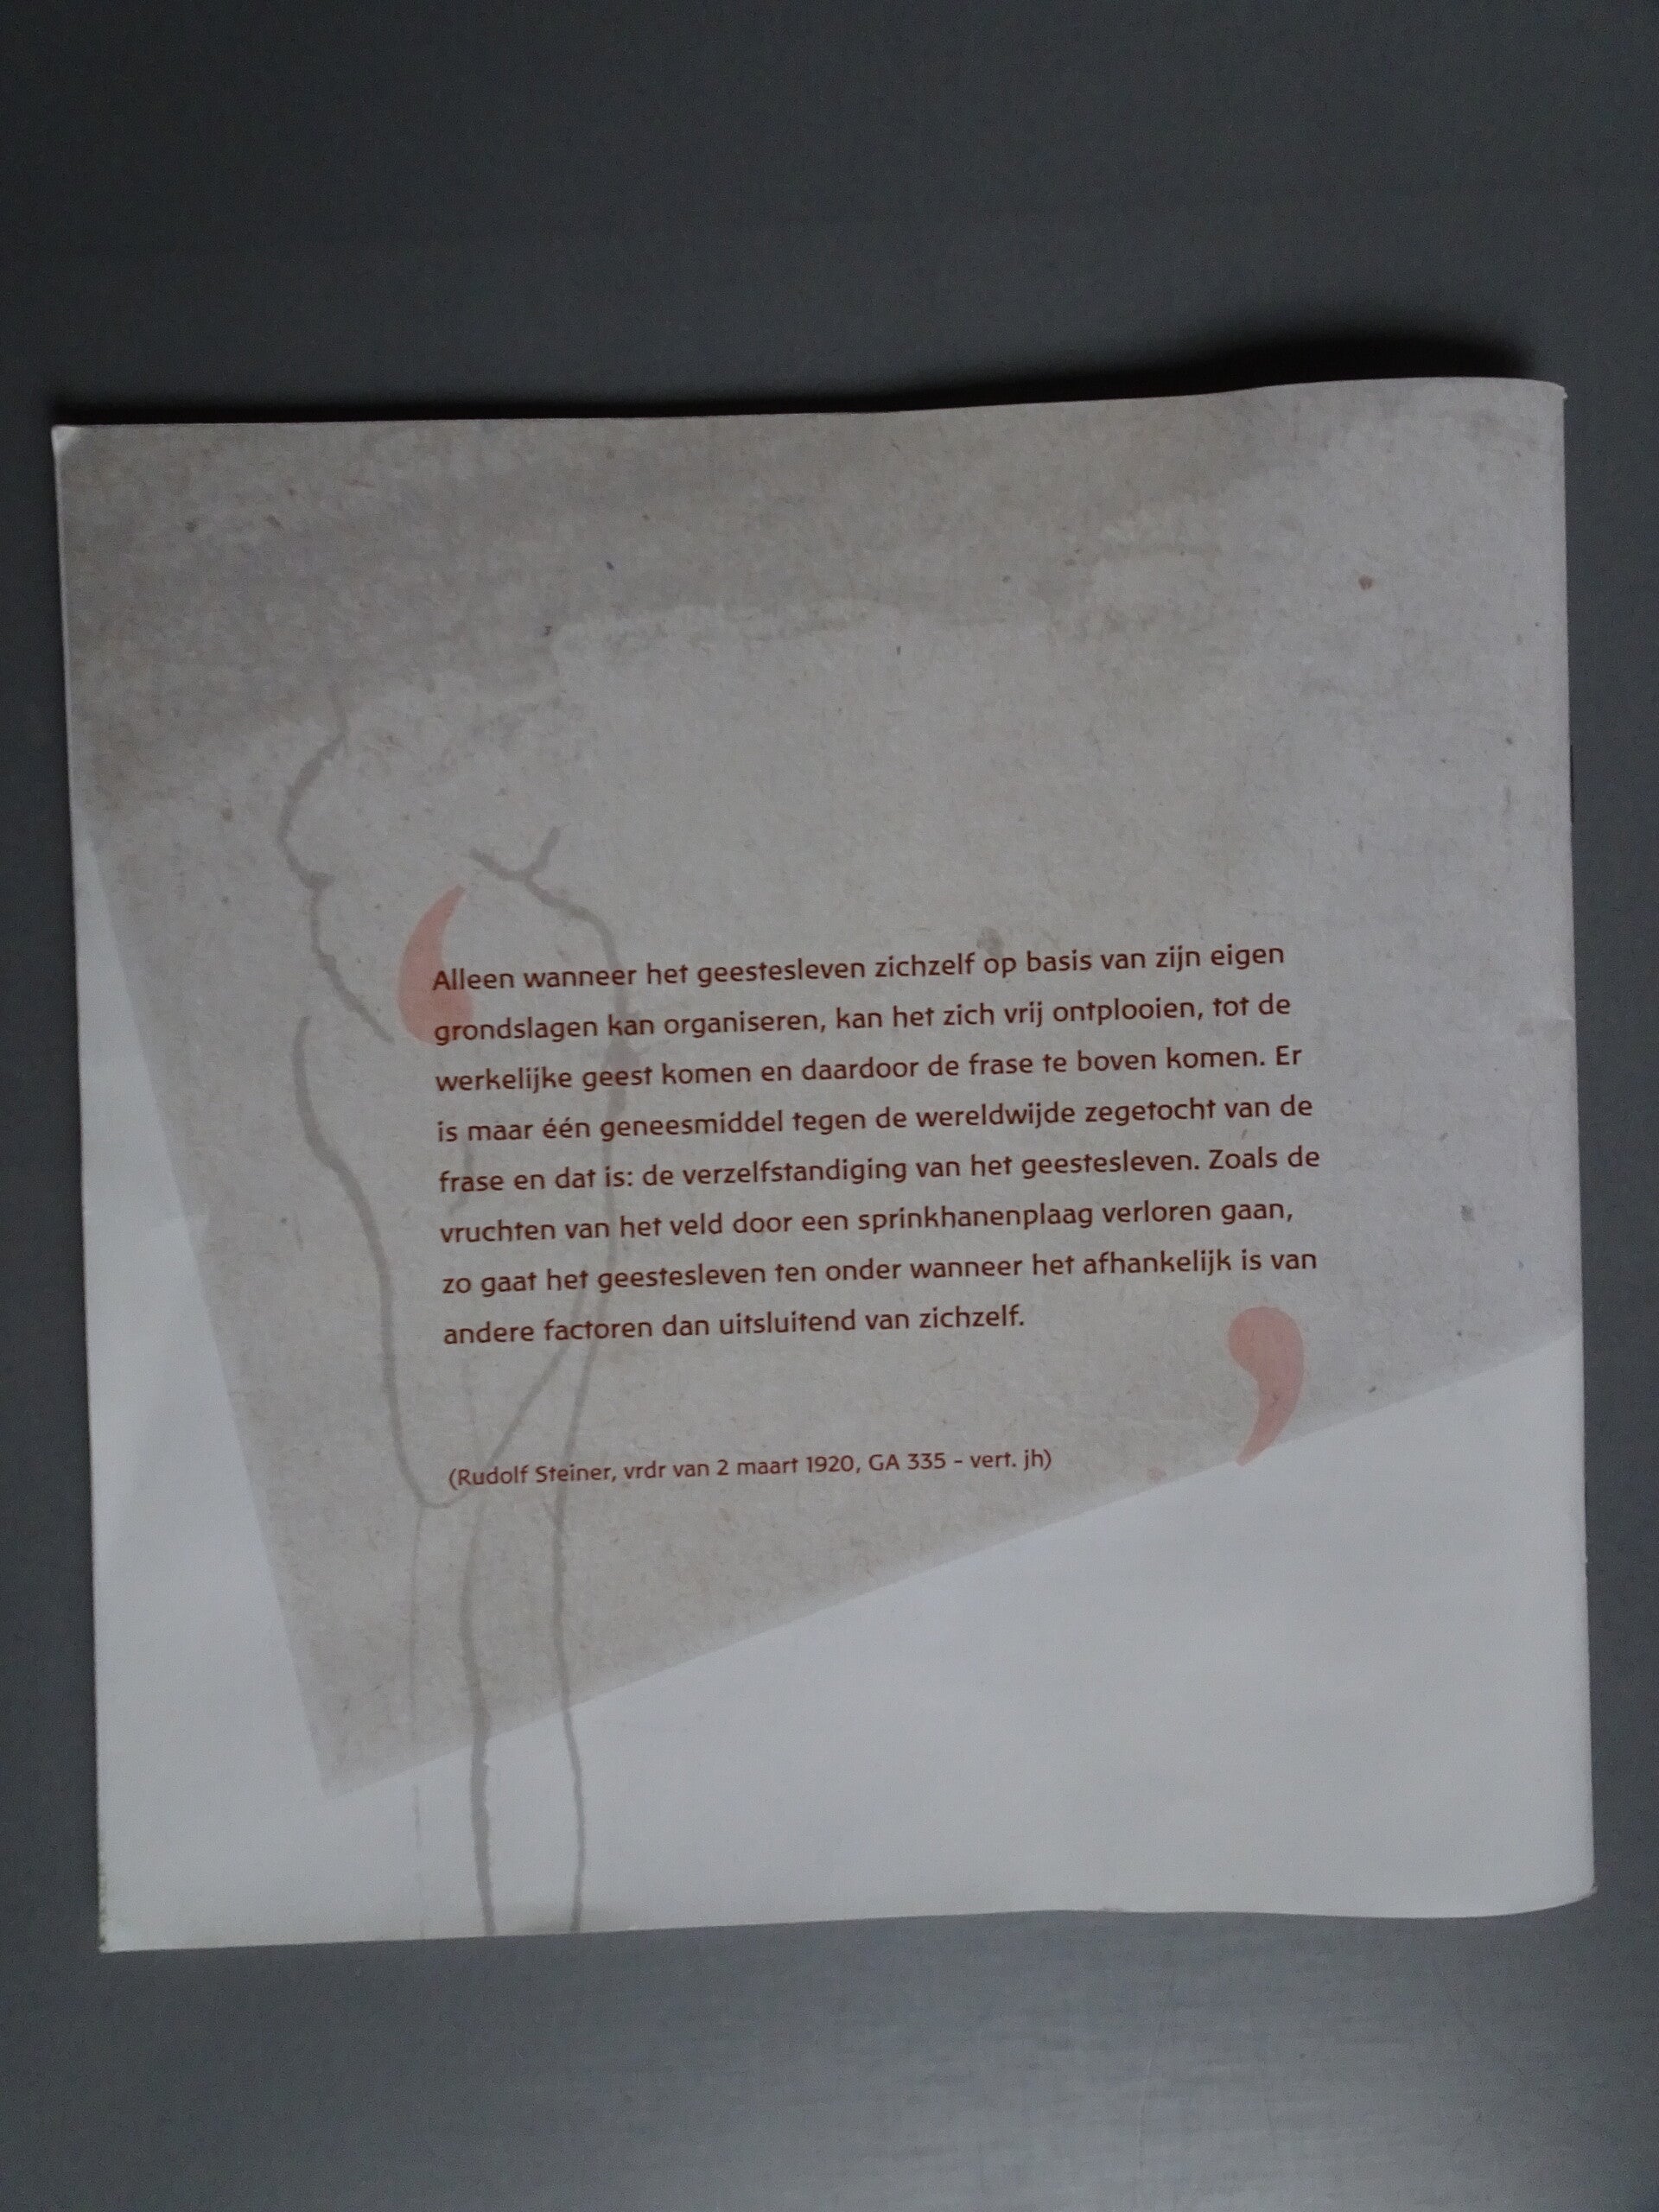 ‘Alleen wanneer het geestesleven zichzelf op basis van zijn eigen
grondslagen kan organiseren, kan het zich vrij ontplooien, tot de
werkelijke geest komen en daardoor de frase te boven komen. Er
is maar één geneesmiddel tegen de wereldwijde zegetocht van de
frase en dat is: de verzelfstandiging van het geestesleven. Zoals de
vruchten van het veld door een sprinkhanenplaag verloren gaan,
zo gaat het geestesleven ten onder wanneer het afhankelijk is van
andere factoren dan uitsluitend van zichzelf.’
(Rudolf Steiner, vrdr van 2 maart 1920, GA 335 - vert. jh)